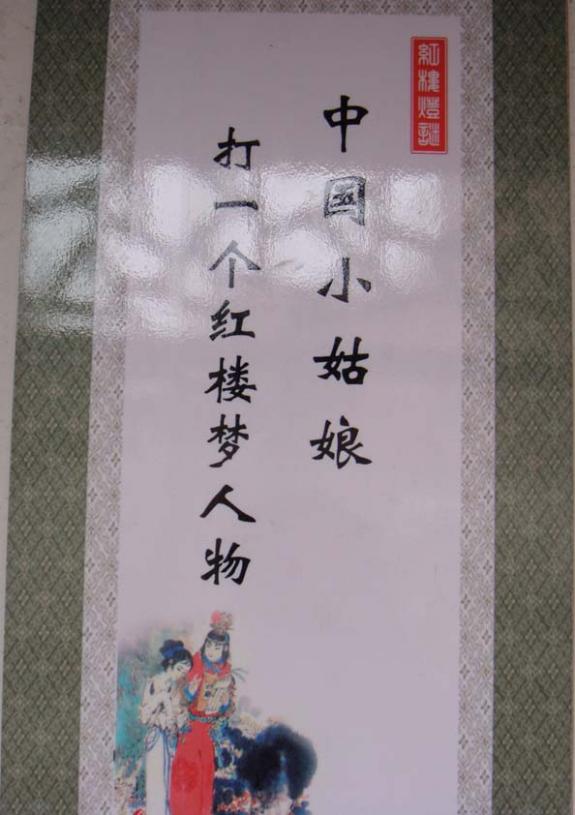 紅樓燈謎
中国小姑娘
打一个红楼梦人物